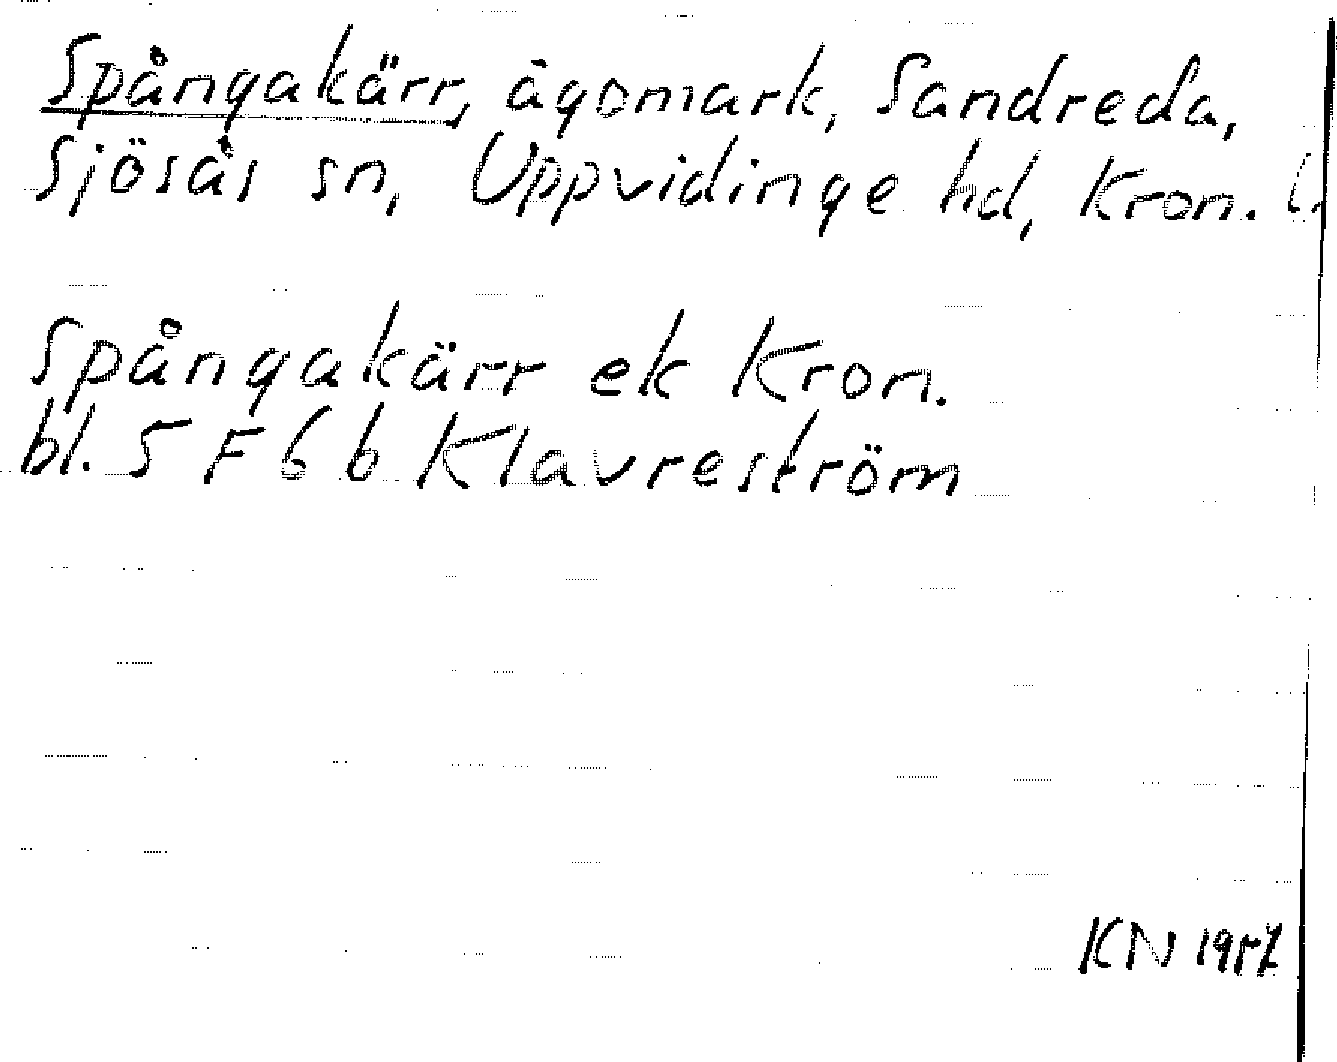 Spångakärr, ägomark, Sandreda,
Sjösås sn, Uppvidinge hd, Kron. l.
Spångakärr ek Kron.
bl. 5 F 6 b Klavreström
KN 1957